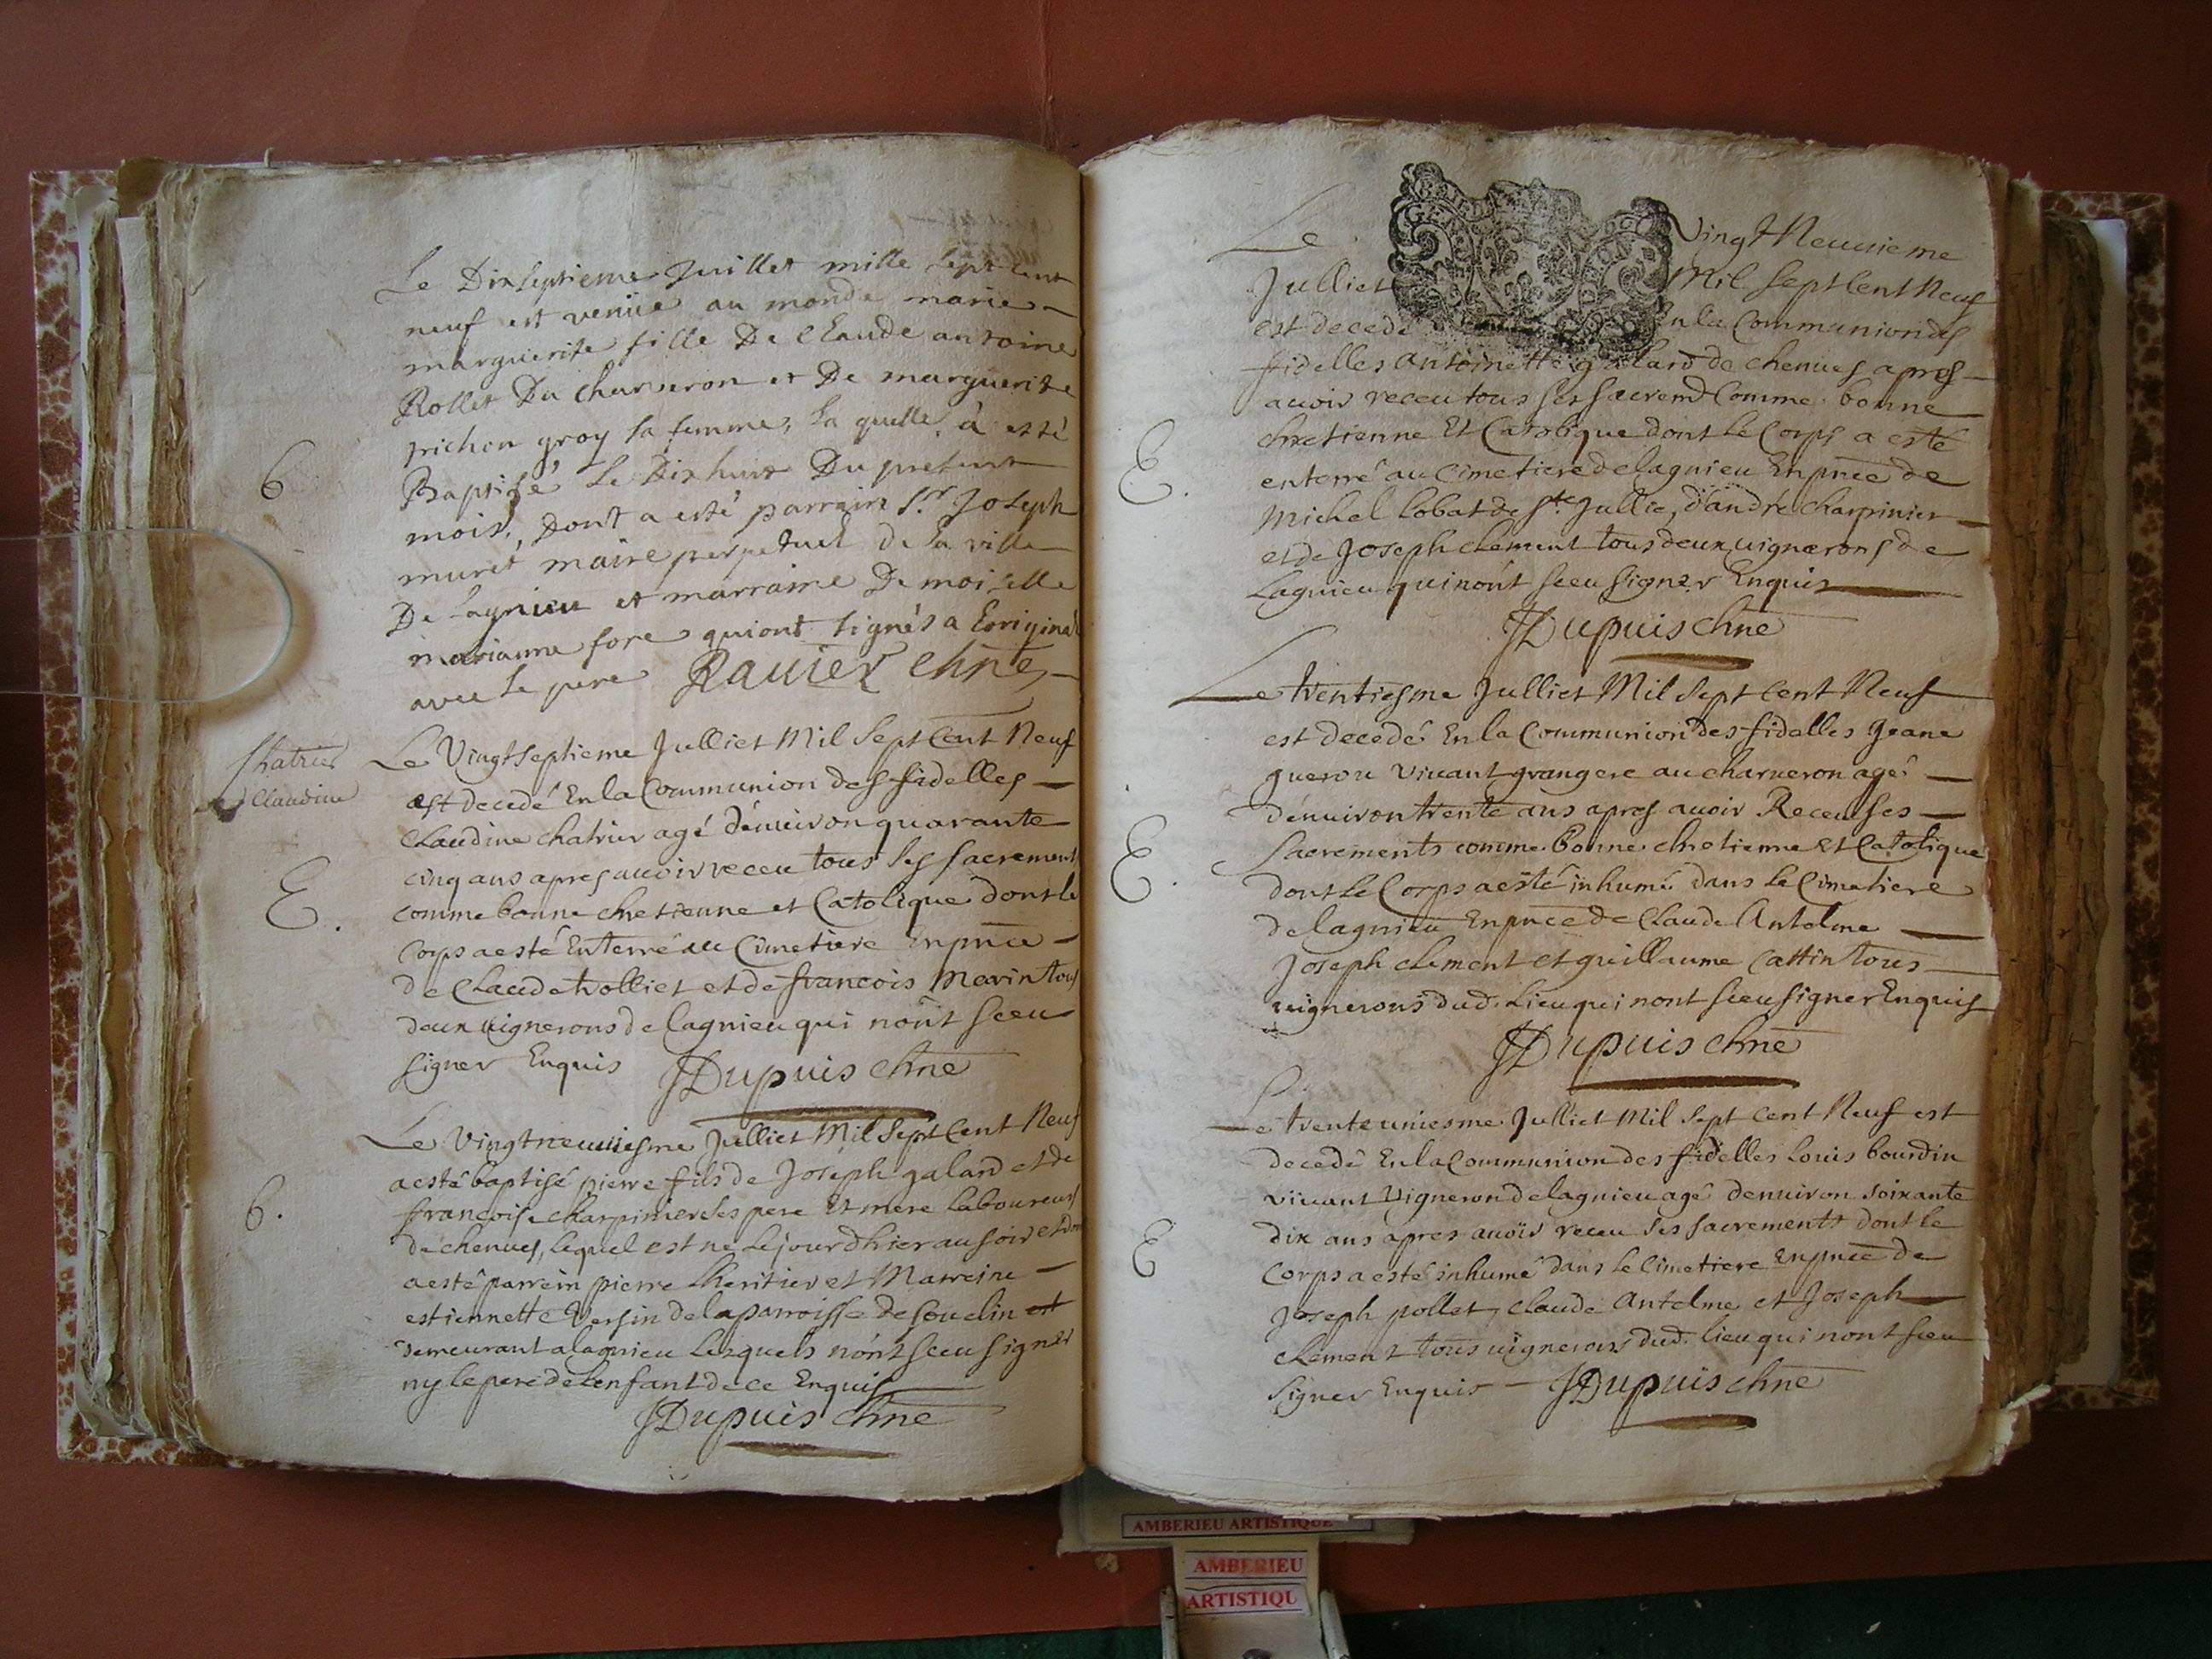 Le Dixseptieme Juillet mille sept cent
neuf est venüe au monde marie
marguerite fille De Claude antoine
Rollet Du charveron et De marguerite
pichon groy sa femme, la quelle à esté
B
Baptisé le Dixhuit Du present
mois, Dont a esté parrain Sr. Joseph
muret maire perpetuel de la ville
De Lagnieu et marraine De moiselle
marianne fore qui ont signés a Loriginal
avec le pere Ravier chne
Chatrier
Claudine
Le Vingtseptieme Julliet Mil Sept Cent Neuf
est decedé En la Communion des fidelles
Claudine chatrier agé dénuiron quarante
cinq ans apres auoir receu tous ses sacrements
E.
comme bonne chretienne et Catolique dont le
Corps a esté Enterré au Cimetiere En pnce
de Claude trolliet et de francois Marin tous
deux uignerons de Lagnieu qui nont sceu
signer Enquis JDupuis chne
Le Vingtneuuiesme Julliet Mil Sept Cent Neuf
a esté baptisé pierre fils de Joseph galard et de
B.
francoise charpinier ses pere Et mere laboureurs
de chenues, lequel est ne le jour dhier au soir et dont
a esté parrein pierre lheritier et Marreine
estiennette Versin de la parroisse de souclin est
demeurant a lagnieu lesquels nont sceu signer
ny le pere de Lenfant de ce Enquis
JDupuis chne
GENERALITE
Le Vingt Neuuieme
Julliet Mil Sept Cent Neuf
est decedé En la Communion des
fidelles antoinette galard de chenues apres
auoir receu tous ses sacremts Comme bonne
E.
chretienne Et Catolique dont le Corps a esté
enterré au Cimetiere de lagnieu En pnce de
Michel lobat de Ste Jullie, dandré charpinier
et de Joseph clement tous deux uignerons de
Lagnieu qui nont sceu signer Enquis
JDupuis chne
Le trentiesme Julliet Mil Sept Cent Neuf
est decedé En la Communion des fidelles Jeane
guerou Viuant grangere au charueron agé
dénuiron trente ans apres auoir Receu ses
E.
Sacrements comme bonne chretienne Et Catolique
dont le Corps a esté inhumé dans le Cimetiere
de lagnieu En pnce de Claude Antelme
Joseph clement et guillaume Cattin tous
uignerons dud. Lieu qui nont sceu signer Enquis
JDupuis chne
Le trente uniesme Julliet Mil Sept Cent Neuf est
decedé En la Communion des fidelles Louis bourdin
viuant Vigneron de lagnieu agé denuiron soixante
E
dix ans apres auoir receu ses sacrements dont le
Corps a esté inhumé dans le Cimetiere En pnce de
Joseph pollet, Claude Antelme et Joseph
clement tous uignerons dud. lieu qui nont sceu
signer Enquis JDupuis chne
AMBERIEU ARTISTIQUE
AMBERIEU
ARTISTIQU